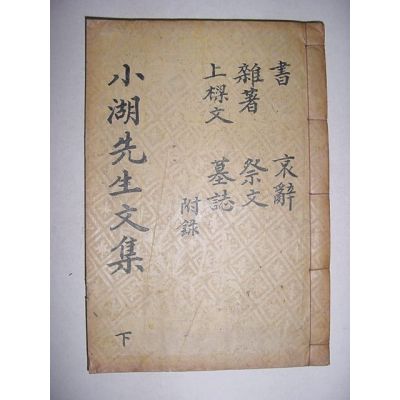 書 哀辭
雜著 祭文
上樑文 墓誌
附錄
小湖先生文集
下